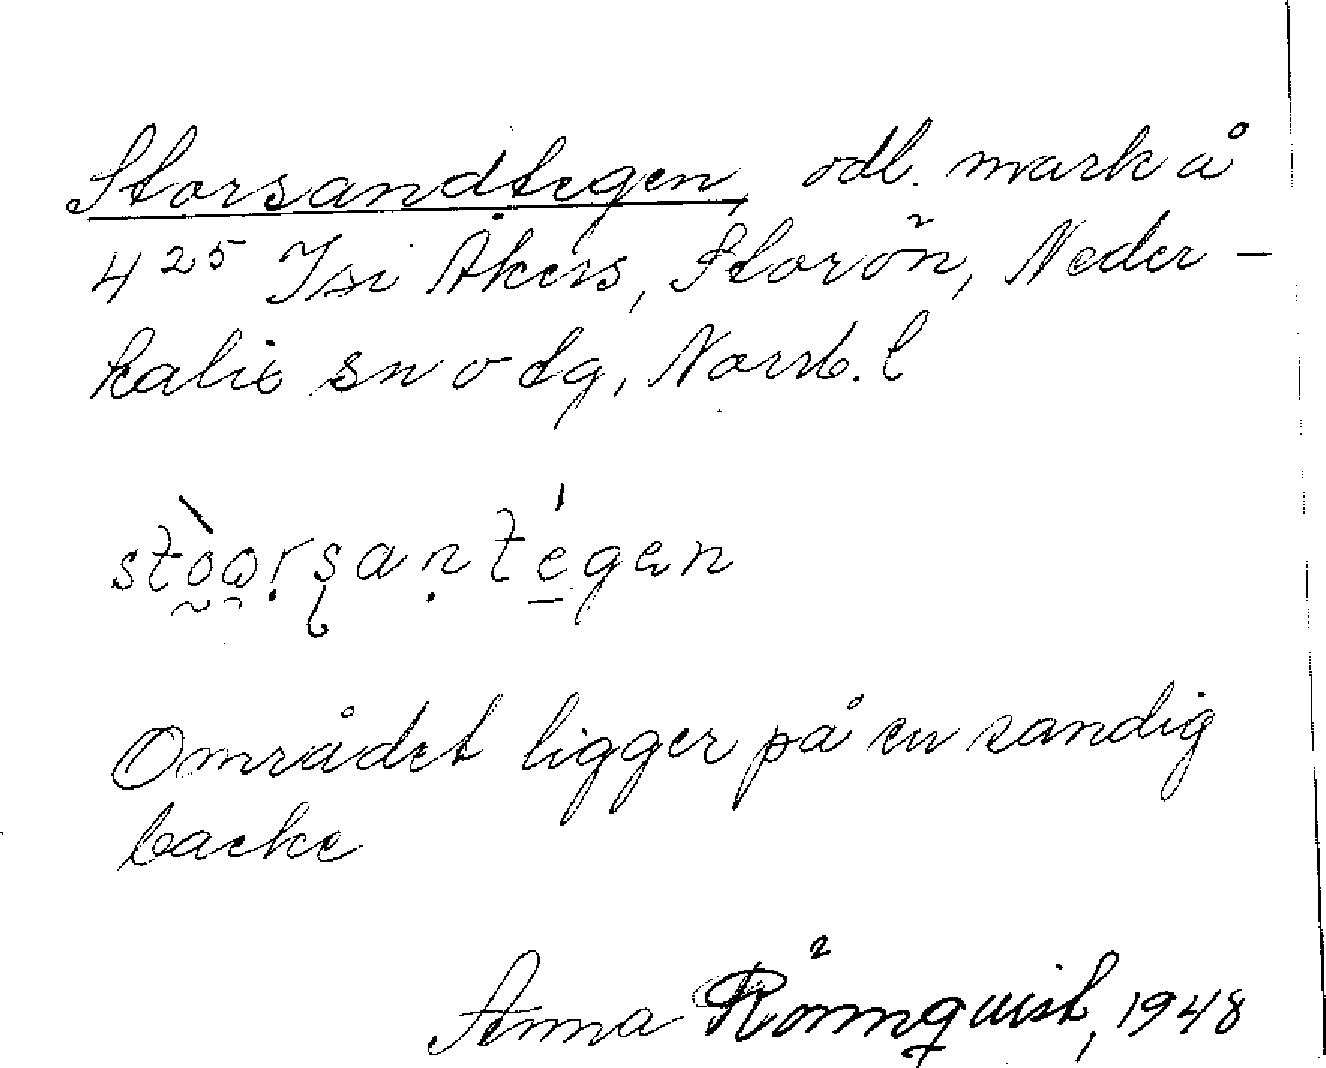 Storsandtegen, odl. mark å
4²⁵ Isi Åkers, Storön, Neder-
kalix sn o tg, Norrb. l
stòorsantégen
Området ligger på en sandig
backe
Anna Rönnquist, 1948